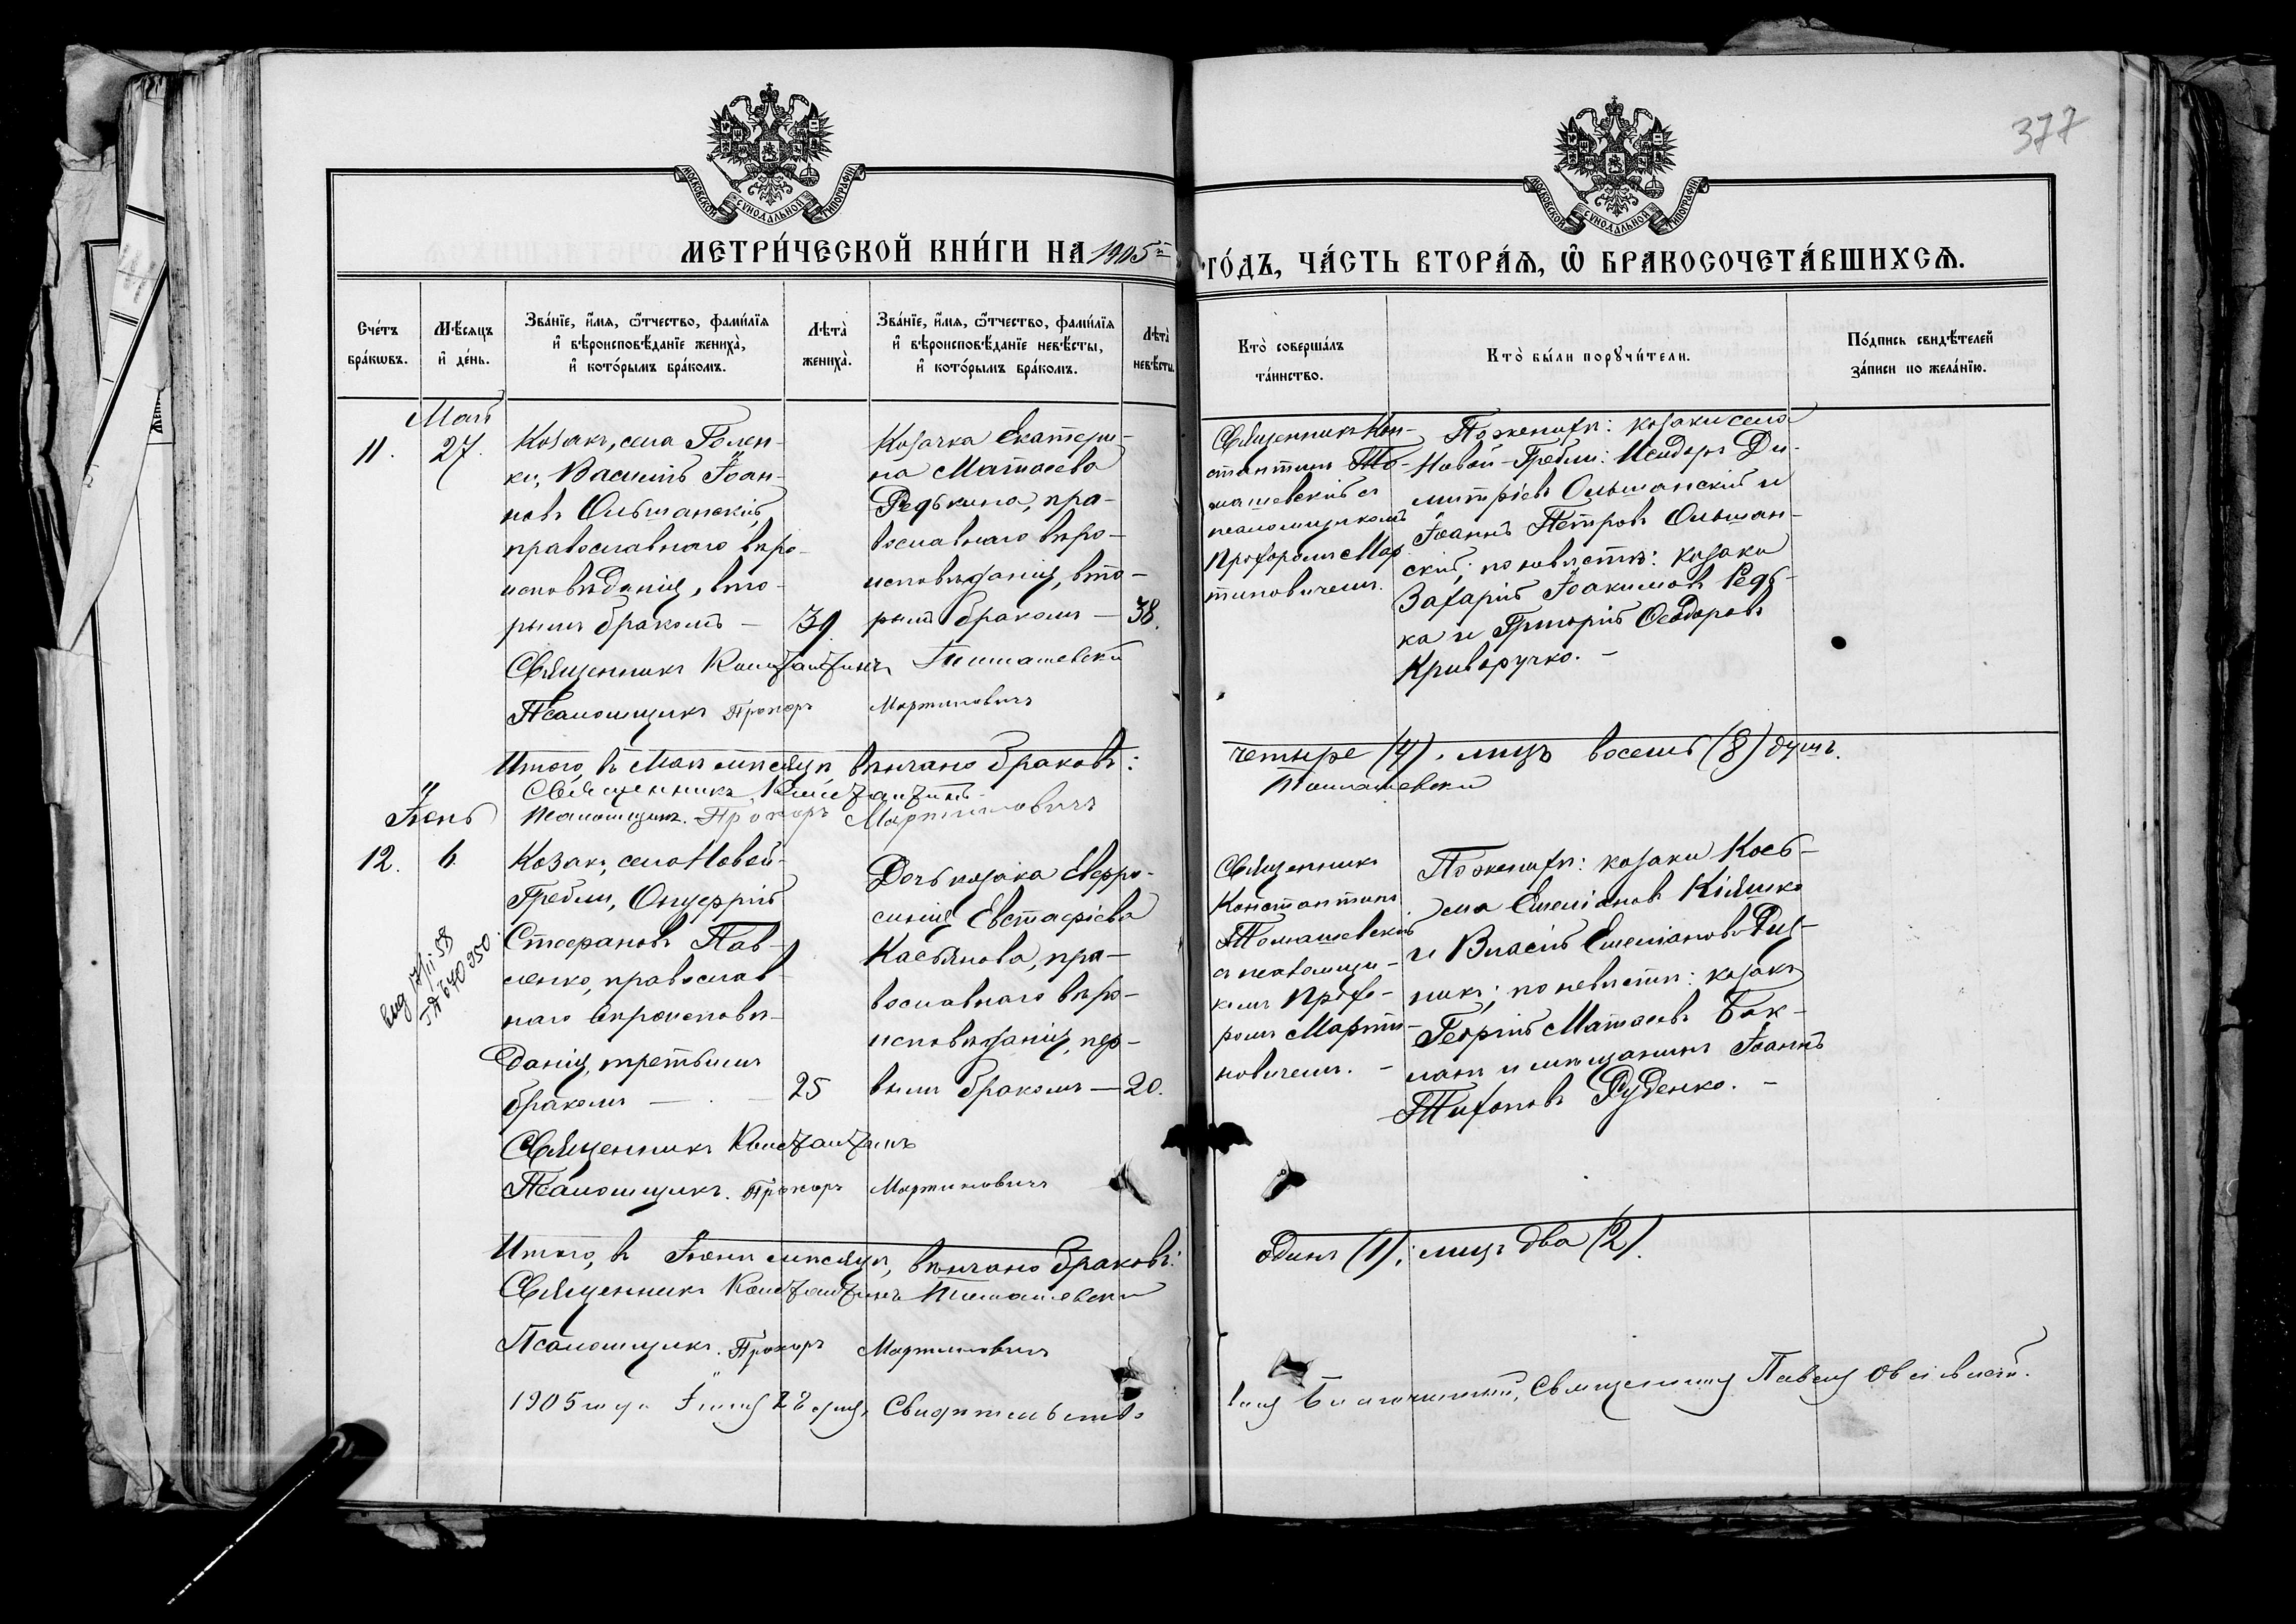 377
МОСКОВСКОЙ СѴНОДАЛЬНОЙ ТИПОГРАФІИ
МОСКОВСКОЙ СѴНОДАЛЬНОЙ ТИПОГРАФІИ
МЕТРИ́ЧЕСКОЙ КНИ́ГИ НА 1905й
ГО́ДЪ, ЧА́СТЬ ВТОРА́Ѧ, Ѽ БРАКОСОЧЕТА́ВШИХСѦ.
Сче́тъ
бра́кωвъ.
Мѣ́сѧцъ
и҆ де́нь.
Зва́нїе, и҆́мѧ, ѻ҆́тчество, фами́лїѧ
и҆ вѣроисповѣ́данїе жениха̀,
и҆ кото́рымъ бра́комъ.
Лѣта̀
жениха̀.
Зва́нїе, и҆́мѧ, ѻ҆́тчество, фами́лїѧ
и҆ вѣроисповѣ́данїе невѣ́сты,
и҆ кото́рымъ бра́комъ.
Лѣта̀
невѣ́сты.
Кто̀ соверша́лъ
та́инство.
Кто̀ бы́ли порꙋчи́тели.
По́дпись свидѣ́телей
за́писи по жела́нїю.
Май
11.
27.
Козакъ, села Голен-
ки, Василій Іоан-
новъ Ольшанскій,
православнаго вѣро-
исповѣданія, вто-
рымъ бракомъ —
39.
Козачка Екатери-
на Матѳеева
Редькина, пра-
вославнаго вѣро-
исповѣданія, вто-
рымъ бракомъ —
38.
Священникъ Кон-
стантинъ То-
машевскій съ
псаломщикомъ
Прохоромъ Мар-
тиновичемъ.
По женихѣ: козаки села
Новой-Гребли: Исидоръ Ди-
митріевъ Ольшанскій и
Іоаннъ Петровъ Ольшан-
скій; по невѣстѣ: козаки
Захарій Іоакимовъ Редь-
ка и Григорій Ѳеодоровъ
Криворучко. —
Священникъ Константинъ Томашевскій
Псаломщикъ Прохоръ Мартиновичъ
Итого, въ Маѣ мѣсяцѣ, вѣнчано браковъ:
четыре (4), лицъ восемь (8) душъ.
Священникъ Константинъ
Томашевскій
Псаломщикъ. Прохоръ Мартиновичъ
Іюнь
12.
6.
Козакъ, села Новой-
Гребли, Онуфрій
Стефановъ Пав-
ленко, православ-
наго вѣроисповѣ-
данія, третьимъ
бракомъ —
25
Дочь козака Евфро-
синія Евстафіева
Касьянова, пра-
вославнаго вѣро-
исповѣданія, пер-
вымъ бракомъ —
20.
Священникъ
Константинъ
Томашевскій
съ псаломщи-
комъ Прохо-
ромъ Марти-
новичемъ. —
По женихѣ: козаки Кось-
ма Емеліановъ Кіяшко
и Власій Емеліановъ Рѣз-
никъ; по невѣстѣ: козакъ
Георгій Матѳеевъ Бак-
ланъ и мѣщанинъ Іоаннъ
Тихоновъ Руденко. —
Священникъ Константинъ
Псаломщикъ. Прохоръ Мартиновичъ
Итого, въ Іюнѣ мѣсяцѣ, вѣнчано браковъ:
одинъ (1); лицъ два (2).
Священникъ Константинъ Томашевскій
Псаломщикъ. Прохоръ Мартиновичъ
1905 года Іюня 28 дня, Свидѣтельство
валъ Благочинный, Священникъ Павелъ